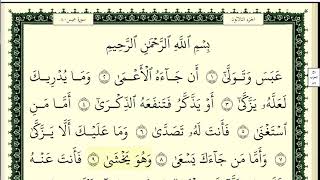 الجزء الثلاثون
سورة عبس ٨٠
بِسْمِ اللَّهِ الرَّحْمَٰنِ الرَّحِيمِ
عَبَسَ وَتَوَلَّىٰٓ ١ أَن جَآءَهُ الْأَعْمَىٰ ٢ وَمَا يُدْرِيكَ
لَعَلَّهُۥ يَزَّكَّىٰٓ ٣ أَوْ يَذَّكَّرُ فَتَنفَعَهُ الذِّكْرَىٰٓ ٤ أَمَّا مَنِ
اسْتَغْنَىٰ ٥ فَأَنتَ لَهُۥ تَصَدَّىٰ ٦ وَمَا عَلَيْكَ أَلَّا يَزَّكَّىٰ
٧ وَأَمَّا مَن جَآءَكَ يَسْعَىٰ ٨ وَهُوَ يَخْشَىٰ ٩ فَأَنتَ عَنْهُ